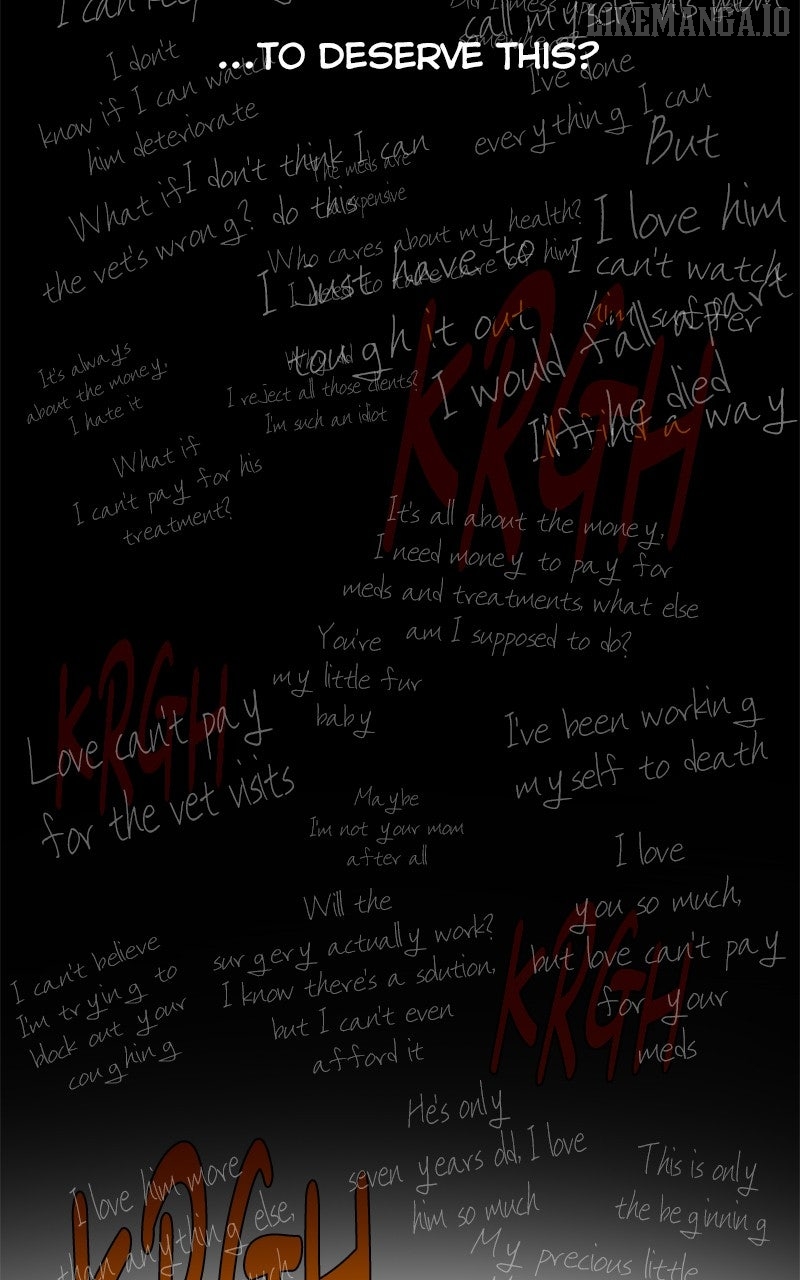 I can
call myself his
LIKEMANGA.IO
...TO DESERVE THIS?
I don't
know if I can watch
him deteriorate
I've done
everything I can
But
I don't think I can
do this
The meds are
expensive
What if
the vet's wrong?
Who cares about my health?
I need to take care of him
I love him
I can't watch
him suffer
I just have to
tough it out
I would fall apart
if he died
I'll find a way
It's always
about the money,
I hate it
I reject all those clients?
I'm such an idiot
KRGH
What if
I can't pay for his
treatment?
It's all about the money,
I need money to pay for
meds and treatments, what else
am I supposed to do?
You're
my little fur
baby
KRGH
Love can't pay
for the vet visits
I've been working
myself to death
Maybe
I'm not your mom
after all
I love
you so much,
but love can't pay
for your
meds
KRGH
Will the
surgery actually work?
I know there's a solution,
but I can't even
afford it
I can't believe
I'm trying to
block out your
coughing
He's only
seven years old, I love
him so much
This is only
the beginning
I love him more
than anything else,
KRGH
My precious little